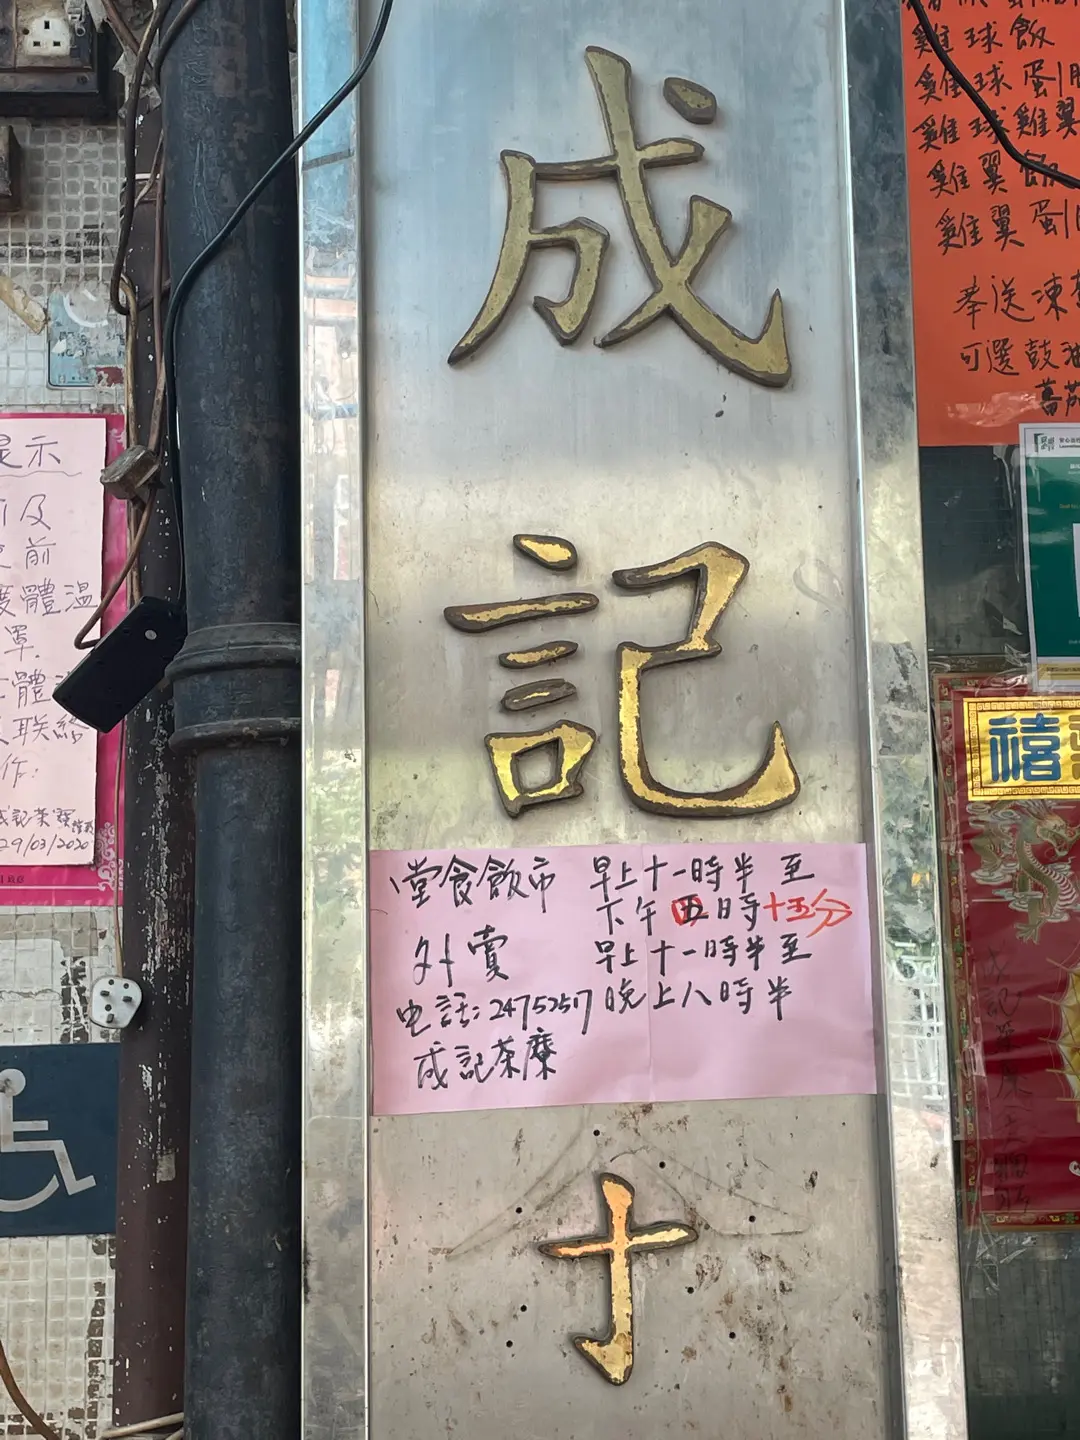 成
記
堂食飲市 早上十一時半至
下午四五時十五分
外賣 早上十一時半至
电話:24752517 晚上八時半
成記茶
雞球飯
雞球蛋
雞球雞翼
雞翼飯
雞翼蛋
奉送凍
可選鼓油
蕃茄
示
及
前
體溫
罩
體
联絡
作:
成記茶
29/03/2020
禧